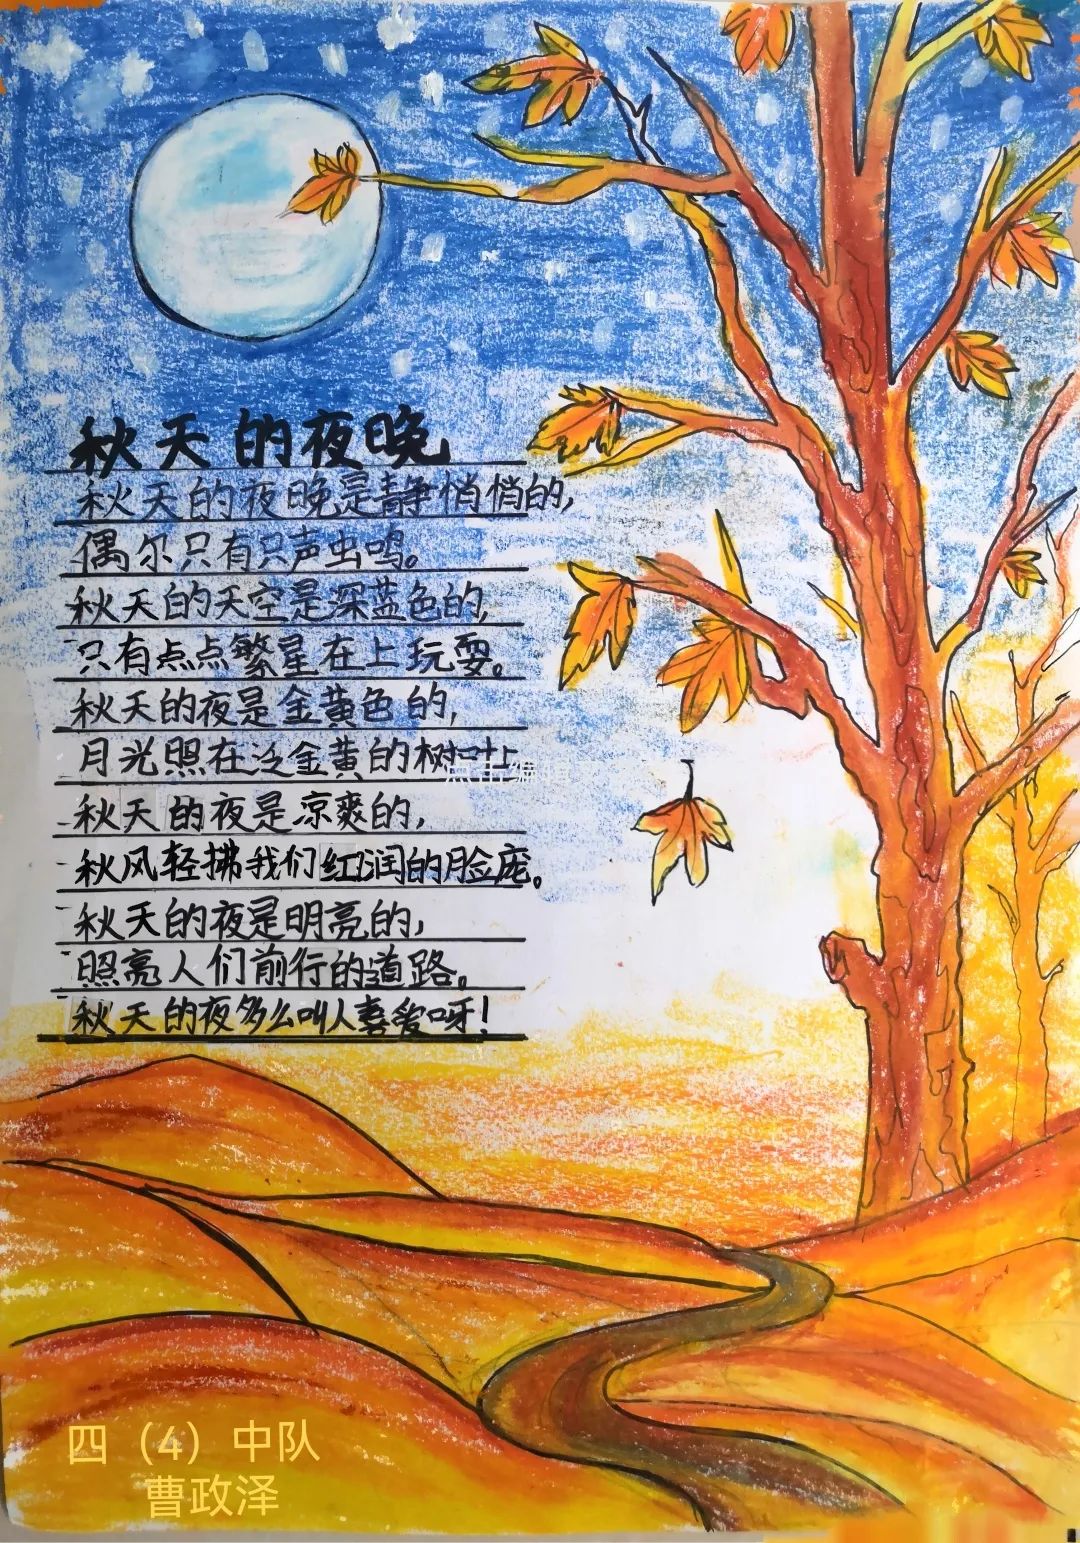 秋天的夜晚
秋天的夜晚是静悄悄的，
偶尔只有只声虫鸣。
秋天的天空是深蓝色的，
只有点点繁星在上玩耍。
秋天的夜是金黄色的，
月光照在泛金黄的树叶上
秋天的夜是凉爽的，
秋风轻拂我们红润的脸庞。
秋天的夜是明亮的，
照亮人们前行的道路。
秋天的夜多么叫人喜爱呀！
四（4）中队
曹政泽